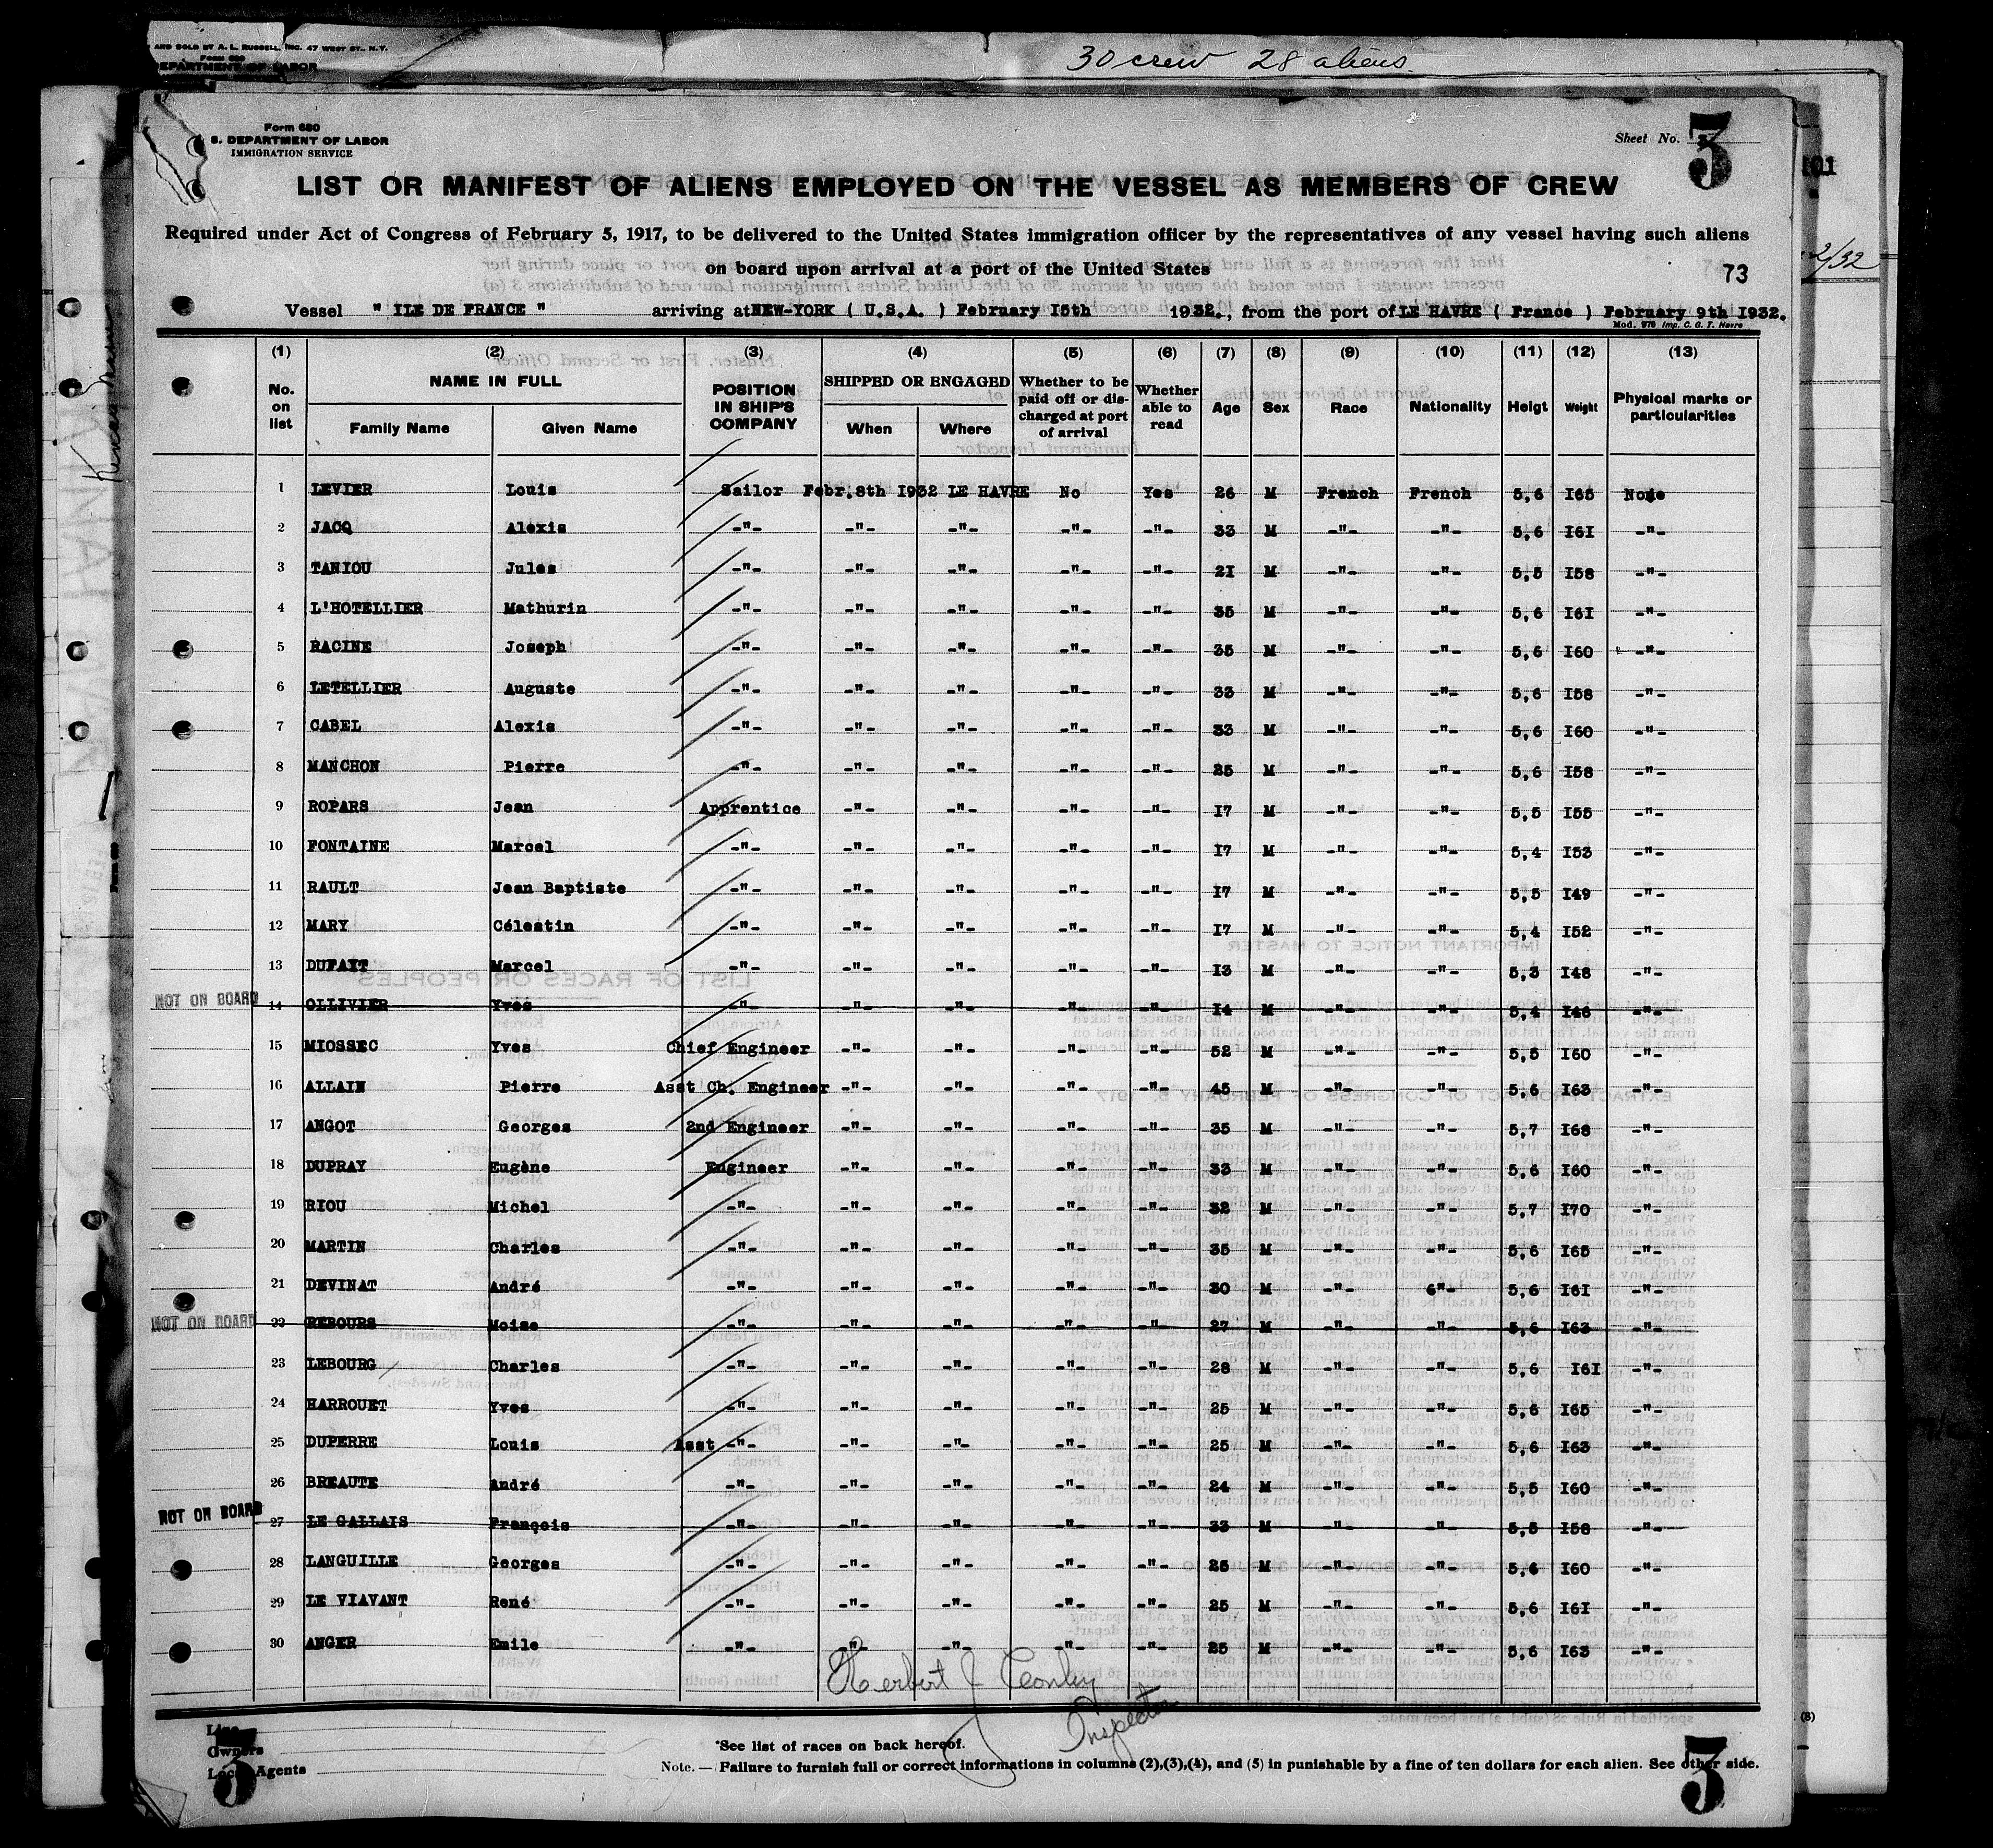 AND SOLD BY A. L. RUSSELL, INC. 47 WEST ST., N.Y.
Form 680
DEPARTMENT OF LABOR
30 crew 28 aliens
Form 680
S. DEPARTMENT OF LABOR
IMMIGRATION SERVICE
Sheet No. 3
LIST OR MANIFEST OF ALIENS EMPLOYED ON THE VESSEL AS MEMBERS OF CREW
101
Required under Act of Congress of February 5, 1917, to be delivered to the United States immigration officer by the representatives of any vessel having such aliens
on board upon arrival at a port of the United States
73
2/32
Vessel " ILE DE FRANCE " arriving at NEW-YORK ( U.S.A. ) February I5th 1932., from the port of LE HAVRE ( France ) February 9th I932.
Mod. 976 Imp. C. G. T. Havre
(1) (2) (3) (4) (5) (6) (7) (8) (9) (10) (11) (12) (13)
No. on list NAME IN FULL Family Name Given Name POSITION IN SHIP'S COMPANY SHIPPED OR ENGAGED When Where Whether to be paid off or discharged at port of arrival Whether able to read Age Sex Race Nationality Heigt Weight Physical marks or particularities
1 LEVIER Louis Sailor Febr.8th I932 LE HAVRE No Yes 26 M French French 5,6 I65 None
2 JACQ Alexis -"- -"- -"- -"- -"- 33 M -"- -"- 5,6 I6I -"-
3 TANIOU Jules -"- -"- -"- -"- -"- 2I M -"- -"- 5,5 I58 -"-
4 L'HOTELLIER Mathurin -"- -"- -"- -"- -"- 35 M -"- -"- 5,6 I6I -"-
5 RACINE Joseph -"- -"- -"- -"- -"- 35 M -"- -"- 5,6 I60 -"-
6 LETELLIER Auguste -"- -"- -"- -"- -"- 33 M -"- -"- 5,6 I58 -"-
7 CABEL Alexis -"- -"- -"- -"- -"- 33 M -"- -"- 5,6 I60 -"-
8 MANCHON Pierre -"- -"- -"- -"- -"- 25 M -"- -"- 5,6 I58 -"-
9 ROPARS Jean Apprentice -"- -"- -"- -"- I7 M -"- -"- 5,5 I55 -"-
10 FONTAINE Marcel -"- -"- -"- -"- -"- I7 M -"- -"- 5,4 I53 -"-
11 RAULT Jean Baptiste -"- -"- -"- -"- -"- I7 M -"- -"- 5,5 I49 -"-
12 MARY Célestin -"- -"- -"- -"- -"- I7 M -"- -"- 5,4 I52 -"-
13 DUFAIT Marcel -"- -"- -"- -"- -"- I3 M -"- -"- 5,3 I48 -"-
NOT ON BOARD 14 OLLIVIER Yves -"- -"- -"- -"- -"- I4 M -"- -"- 5,4 I46 -"-
15 MIOSSEC Yves Chief Engineer -"- -"- -"- -"- 52 M -"- -"- 5,5 I60 -"-
16 ALLAIN Pierre Asst Ch. Engineer -"- -"- -"- -"- 45 M -"- -"- 5,6 I63 -"-
17 ANGOT Georges 2nd Engineer -"- -"- -"- -"- 35 M -"- -"- 5,7 I68 -"-
18 DUPRAY Eugène Engineer -"- -"- -"- -"- 33 M -"- -"- 5,6 I60 -"-
19 RIOU Michel -"- -"- -"- -"- -"- 32 M -"- -"- 5,7 I70 -"-
20 MARTIN Charles -"- -"- -"- -"- -"- 35 M -"- -"- 5,6 I65 -"-
21 DEVINAT André -"- -"- -"- -"- -"- 30 M -"- 6"- 5,6 I6I -"-
NOT ON BOARD 22 REBOURS Moise -"- -"- -"- -"- -"- 27 M -"- -"- 5,6 I63 -"-
23 LEBOURG Charles -"- -"- -"- -"- -"- 28 M -"- -"- 5,6 I6I -"-
24 HARROUET Yves -"- -"- -"- -"- -"- 25 M -"- -"- 5,6 I65 -"-
25 DUPERRE Louis Asst -"- -"- -"- -"- -"- 25 M -"- -"- 5,6 I63 -"-
26 BREAUTE André -"- -"- -"- -"- -"- 24 M -"- -"- 5,5 I60 -"-
NOT ON BOARD 27 LE GALLAIS François -"- -"- -"- -"- -"- 33 M -"- -"- 5,5 I58 -"-
28 LANGUILLE Georges -"- -"- -"- -"- -"- 25 M -"- -"- 5,6 I60 -"-
29 LE VIAVANT René -"- -"- -"- -"- -"- 25 M -"- -"- 5,6 I6I -"-
30 ANGER Emile -"- -"- -"- -"- -"- 25 M -"- -"- 5,6 I63 -"-
Herbert J
Inspector
Line
Owners
Local Agents
*See list of races on back hereof.
Note. — Failure to furnish full or correct informations in columns (2),(3),(4), and (5) in punishable by a fine of ten dollars for each alien. See other side.
3
3
(8)